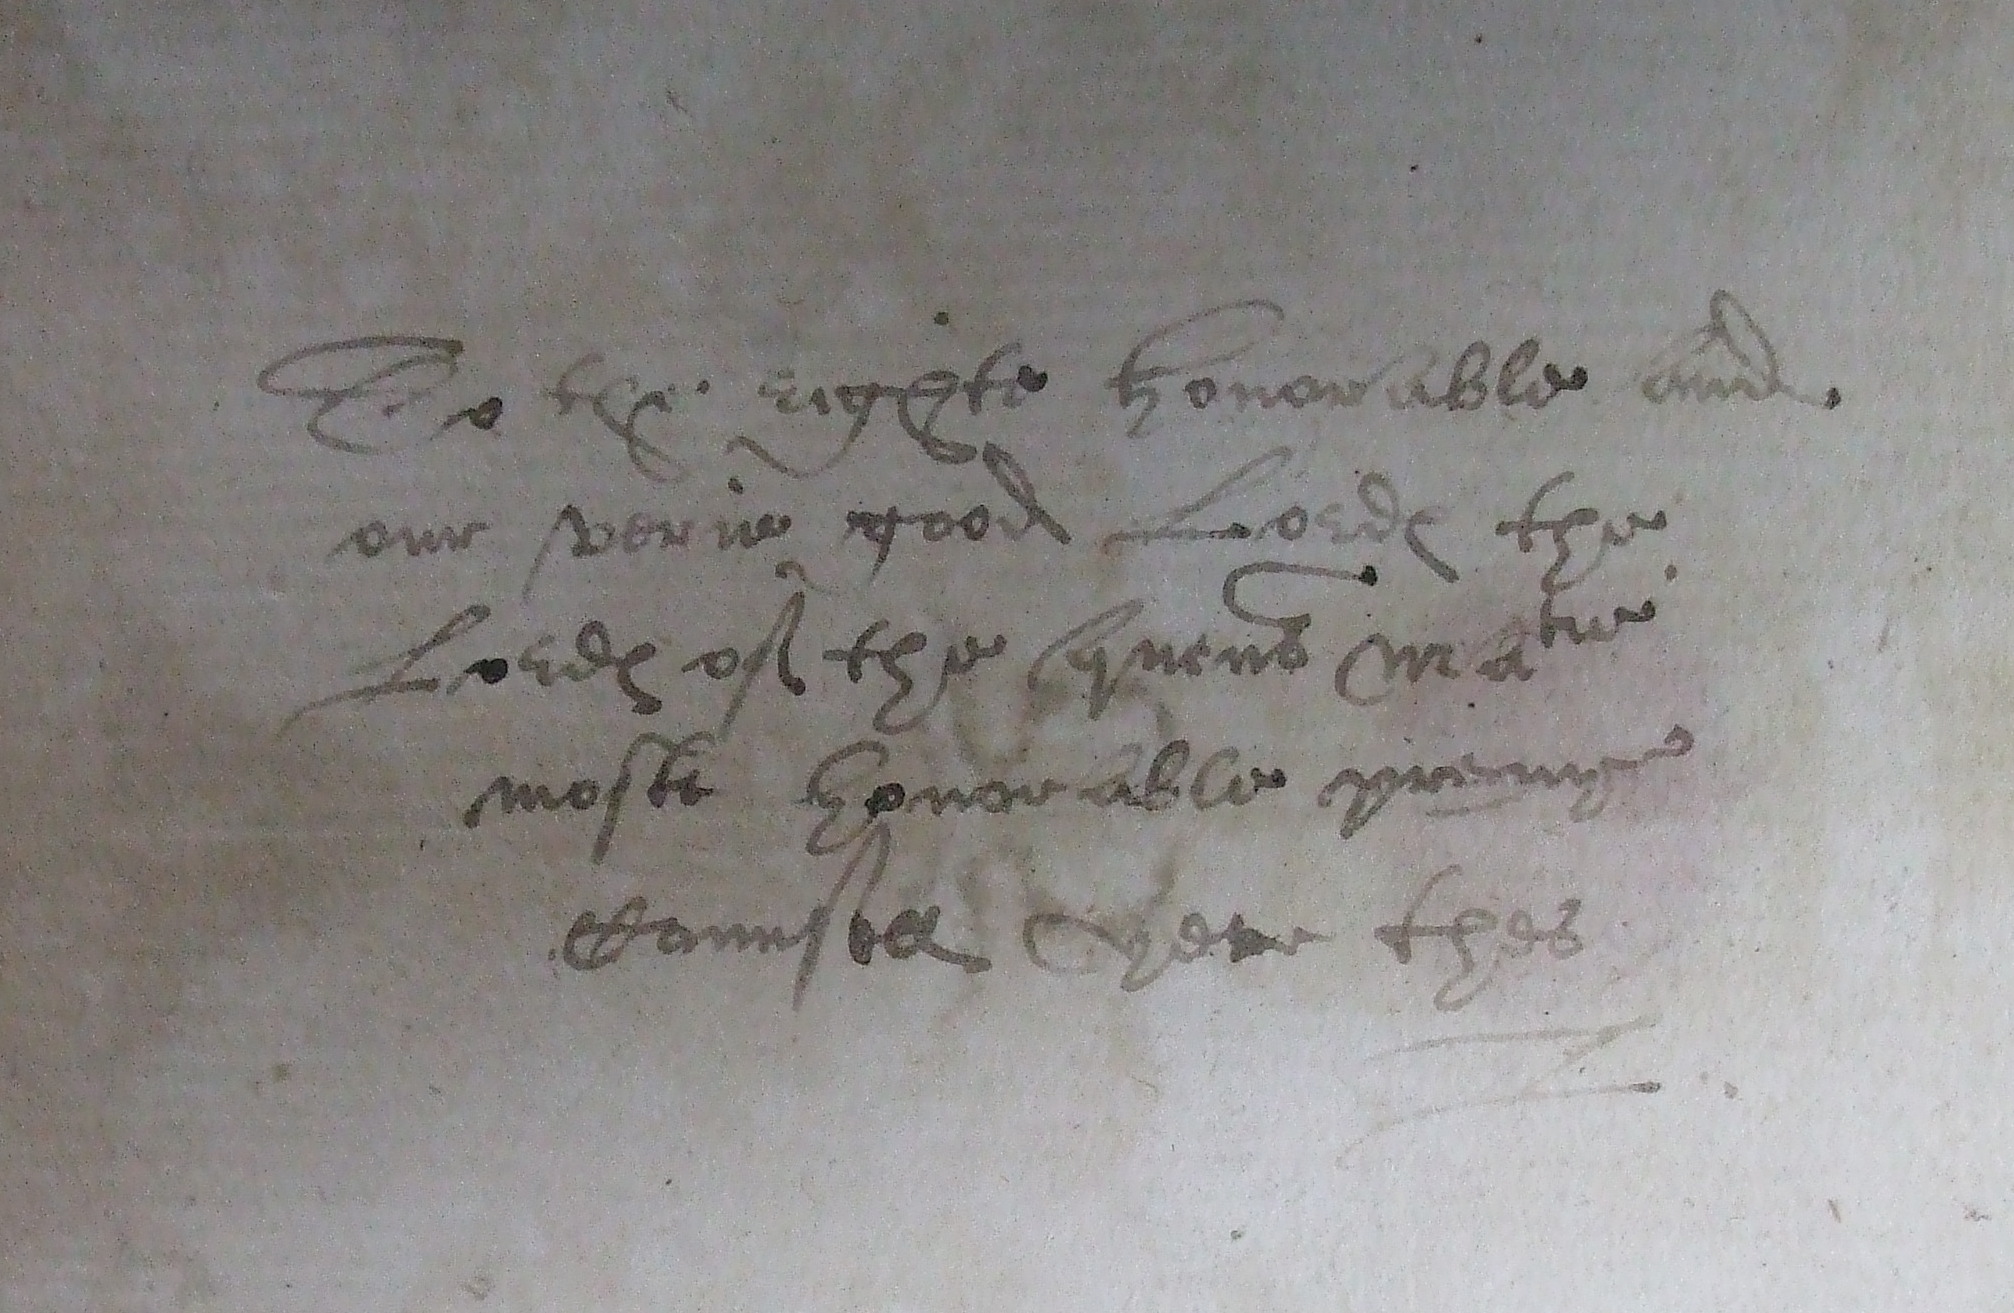 To the righte honorable and
our verie good Lordes the
Lordes of the Quenes Matie
moste honorable
Counsell yeve thes